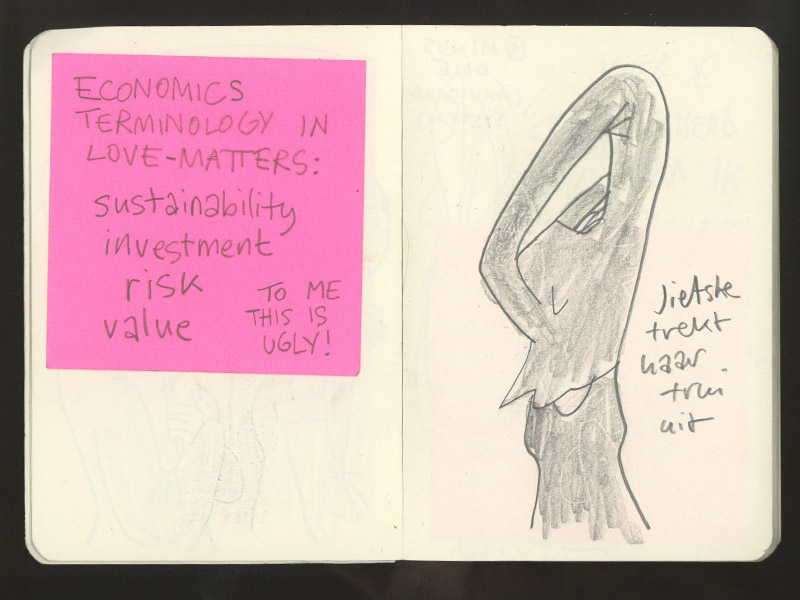 ECONOMICS
TERMINOLOGY IN
LOVE-MATTERS:
sustainability
investment
risk
value
TO ME
THIS IS
UGLY!
MINUS
ONE
SYSTEMS
Jietske
trekt
haar
trui
uit